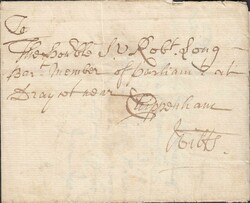 To
The Honble Sr Robt. Long
Bart. Member of Parliamt. at
Draycot near
Chippenham
Wilts